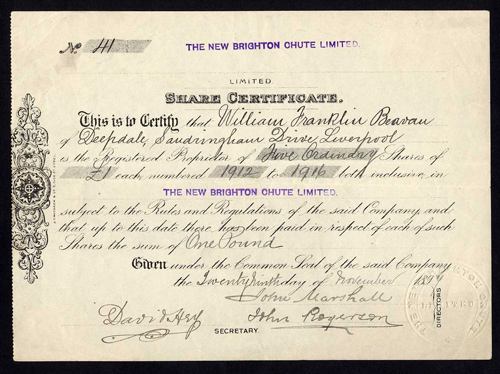 No. 41
THE NEW BRIGHTON CHUTE LIMITED.
LIMITED.
SHARE CERTIFICATE.
This is to Certify that William Franklin Beavan
of Deepdale, Sandringham Drive, Liverpool
is the Registered Proprietor of Five Ordinary Shares of
£1 each, numbered 1912 to 1916 both inclusive, in
THE NEW BRIGHTON CHUTE LIMITED.
subject to the Rules and Regulations of the said Company, and
that up to this date there has been paid in respect of each of such
Shares the sum of One Pound
Given under the Common Seal of the said Company
the Twenty ninth day of November 189
John Marshall
John Rogerson
DIRECTORS
David
SECRETARY.
LIMITED